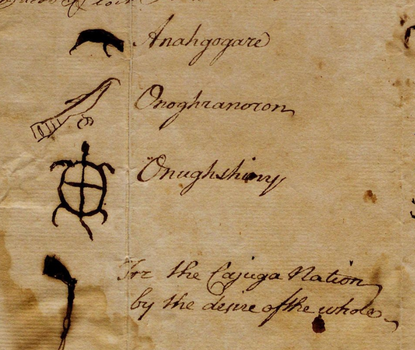 Anahgogare
Onoghranoron
Onughshiny
For the Cajuga Nation
by the desire of the whole